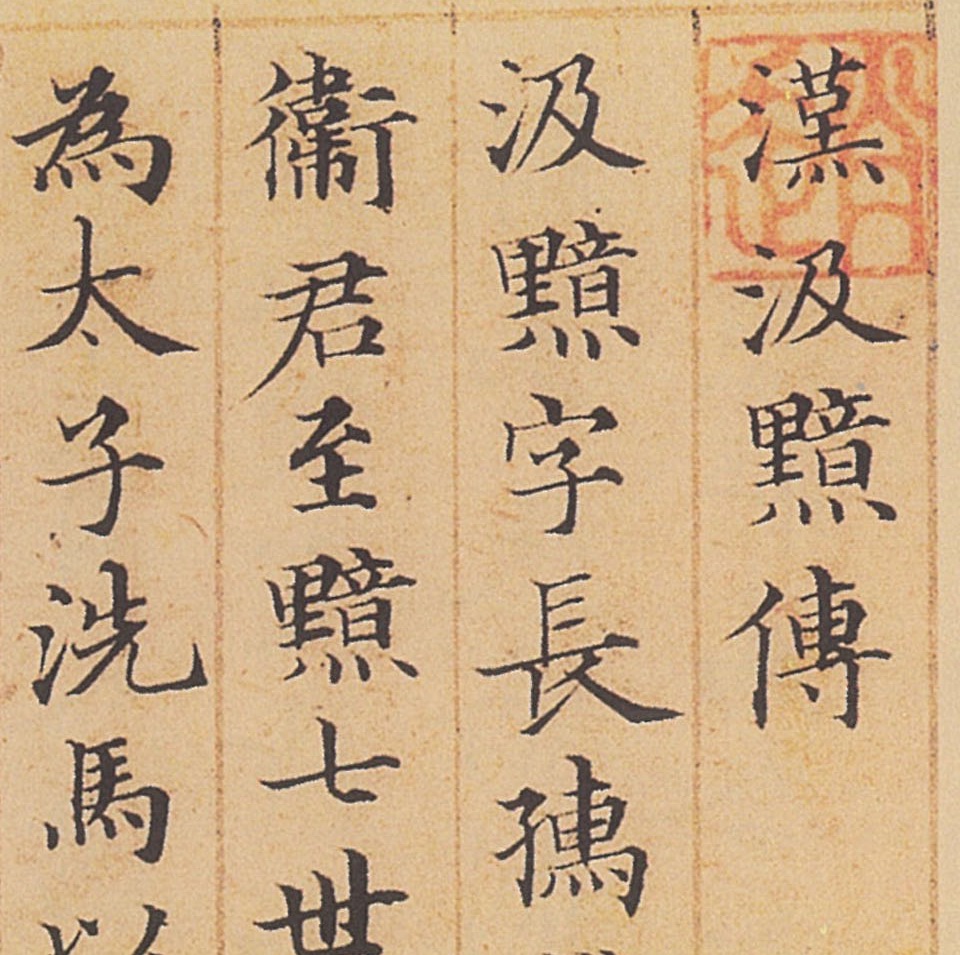 漢汲黯傳
汲黯字長孺
衞君至黯七世
為太子洗馬以